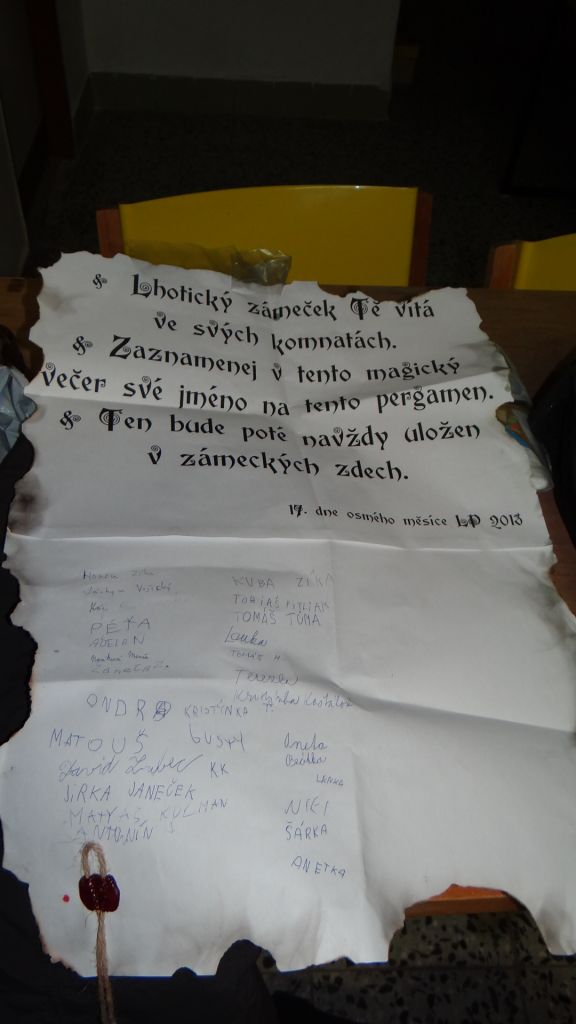 Lhotický zámeček Tě vítá
ve svých komnatách.
Zaznamenej v tento magický
večer své jméno na tento pergamen.
Ten bude poté navždy uložen
v zámeckých zdech.
17. dne osmého měsíce LP 2013
KUBA ZÍKA
TOBIÁŠ
PÉŤA
TOMÁŠ TŮMA
ADÉLA
Lenka
TOMÁŠ H
Tereza
ONDRA
KRISTÝNKA T.
MATOUŠ
GUSTY
Aneta
David
KK
Beátka
LENKA
JIRKA JANEČEK
MATYÁŠ KULMAN
NIKI
ANTONÍN
ŠÁRKA
ANETKA